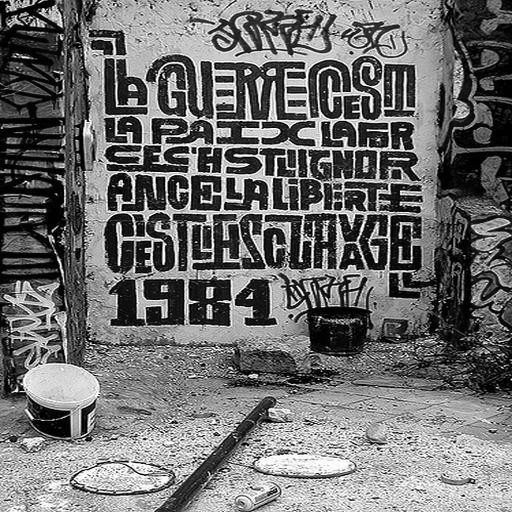 LA GUERRE C'EST
LA PAIX LA FOR
CE C'EST L'IGNOR
ANCE LA LIBERTE
C'EST L'ESCLAVAGE
1984